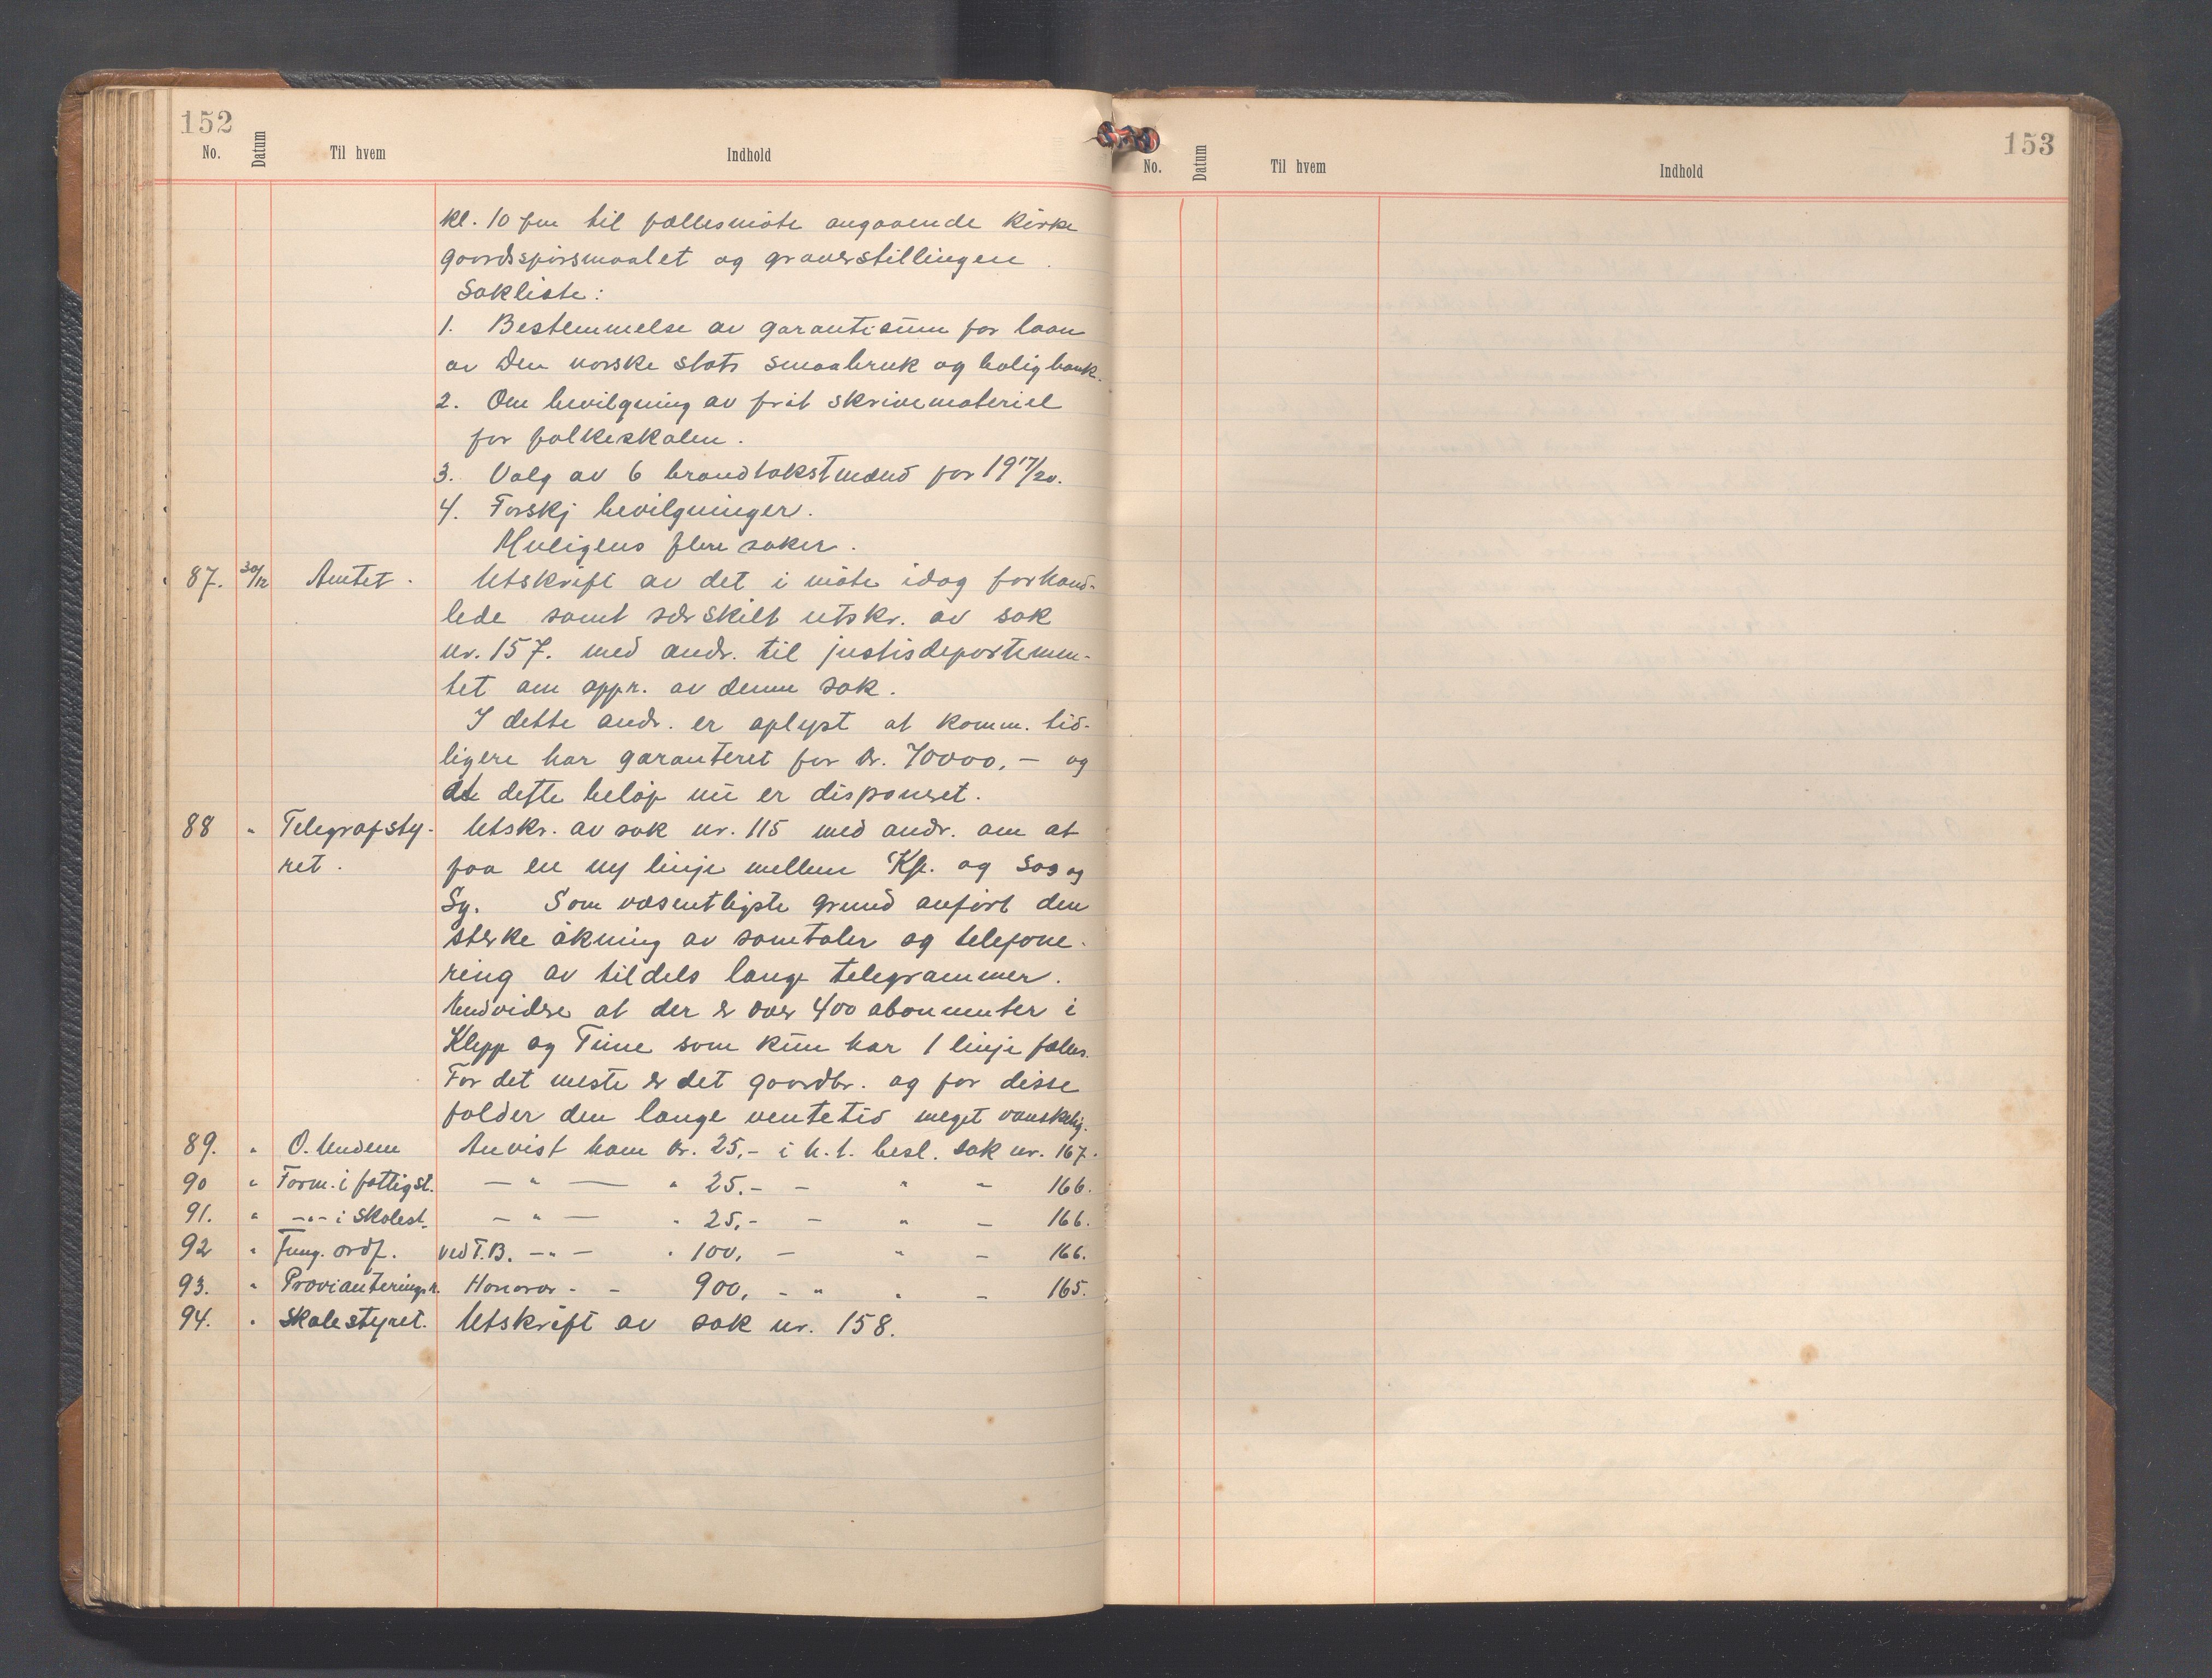 152
No. Datum Til hvem Indhold
kl. 10 fm til fællesmøte angaaende kirke
gaardsspørsmaalet og graverstillingen.
Sakliste:
1. Bestemmelse av garantisum for laan
av Den norske stats smaabruk og boligbank.
2. Om bevilgning av frit skrivemateriel
for folkeskolen.
3. Valg av 6 brandtakstmænd for 1917/20.
4. Forskj bevilgninger.
Muligens flere saker.
87. 30/12 Amtet. Utskrift av det i møte idag forhand-
lede samt særskilt utskr. av sak
nr. 157. med andr. til justisdepartemen-
tet om appr. av denne sak.
I dette andr. er oplyst at komm. tid-
ligere har garanteret for kr. 70000,- og
at dette beløp nu er disponeret.
88 " Telegrafsty- Utskr. av sak nr. 115 med andr. om at
ret. faa en ny linje mellem Kp. og Sas og
Sg. Som væsentligste grund anført den
sterke økning av samtaler og telefone-
ring av tildels lange telegrammer.
Undvidere at der er over 400 abonnenter i
Klepp og Time som kun har 1 linje fælles.
For det meste er det gaardbr. og for disse
falder den lange ventetid meget vanskelig.
89. " O. Undem Anvist ham kr. 25,- i h. t. besl. sak nr. 167.
90 " Form. i fattigst. — " — " 25.- - " - 166.
91. " -"- i Skolest. — " — " 25,- - " - 166.
92 " Fung. ordf. ved T.B. -"- " 100, - " - 166.
93. " Provianteringsr. Honorar - - 900, - " " - 165.
94. " Skolestyret. Utskrift av sak nr. 158.
153
No. Datum Til hvem Indhold